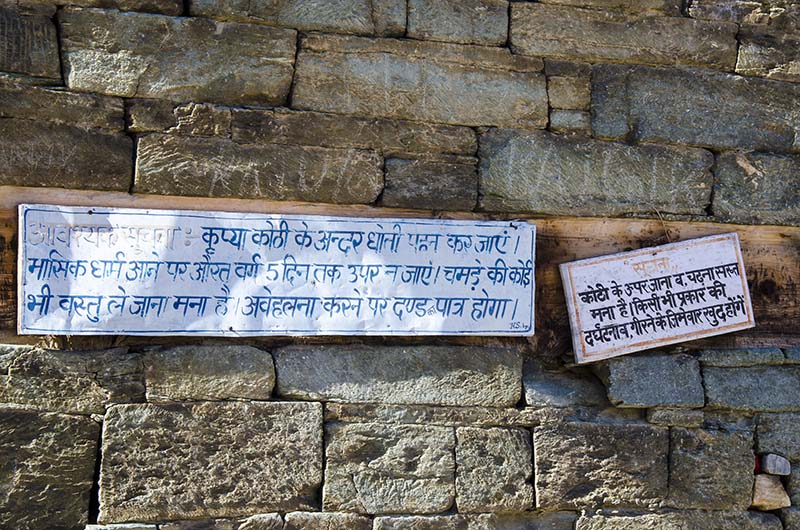 आवश्यक सूचना : कृप्या कोठी के अन्दर धोती पहन कर जाएं।
मासिक धार्म आन पर औरत वर्ग 5 दिन तक उपर न जाएं। चमड़े की कोई
भी वस्तु ले जाना मना है। अवेहलना करने पर दण्ड का पात्र होगा।
सूचना
कोठी के ऊपर जाना व चढ़ना सख्त
मना है। किसी भी प्रकार की
दुर्घटना व गीरने के जिमेवार खुद होंगें।